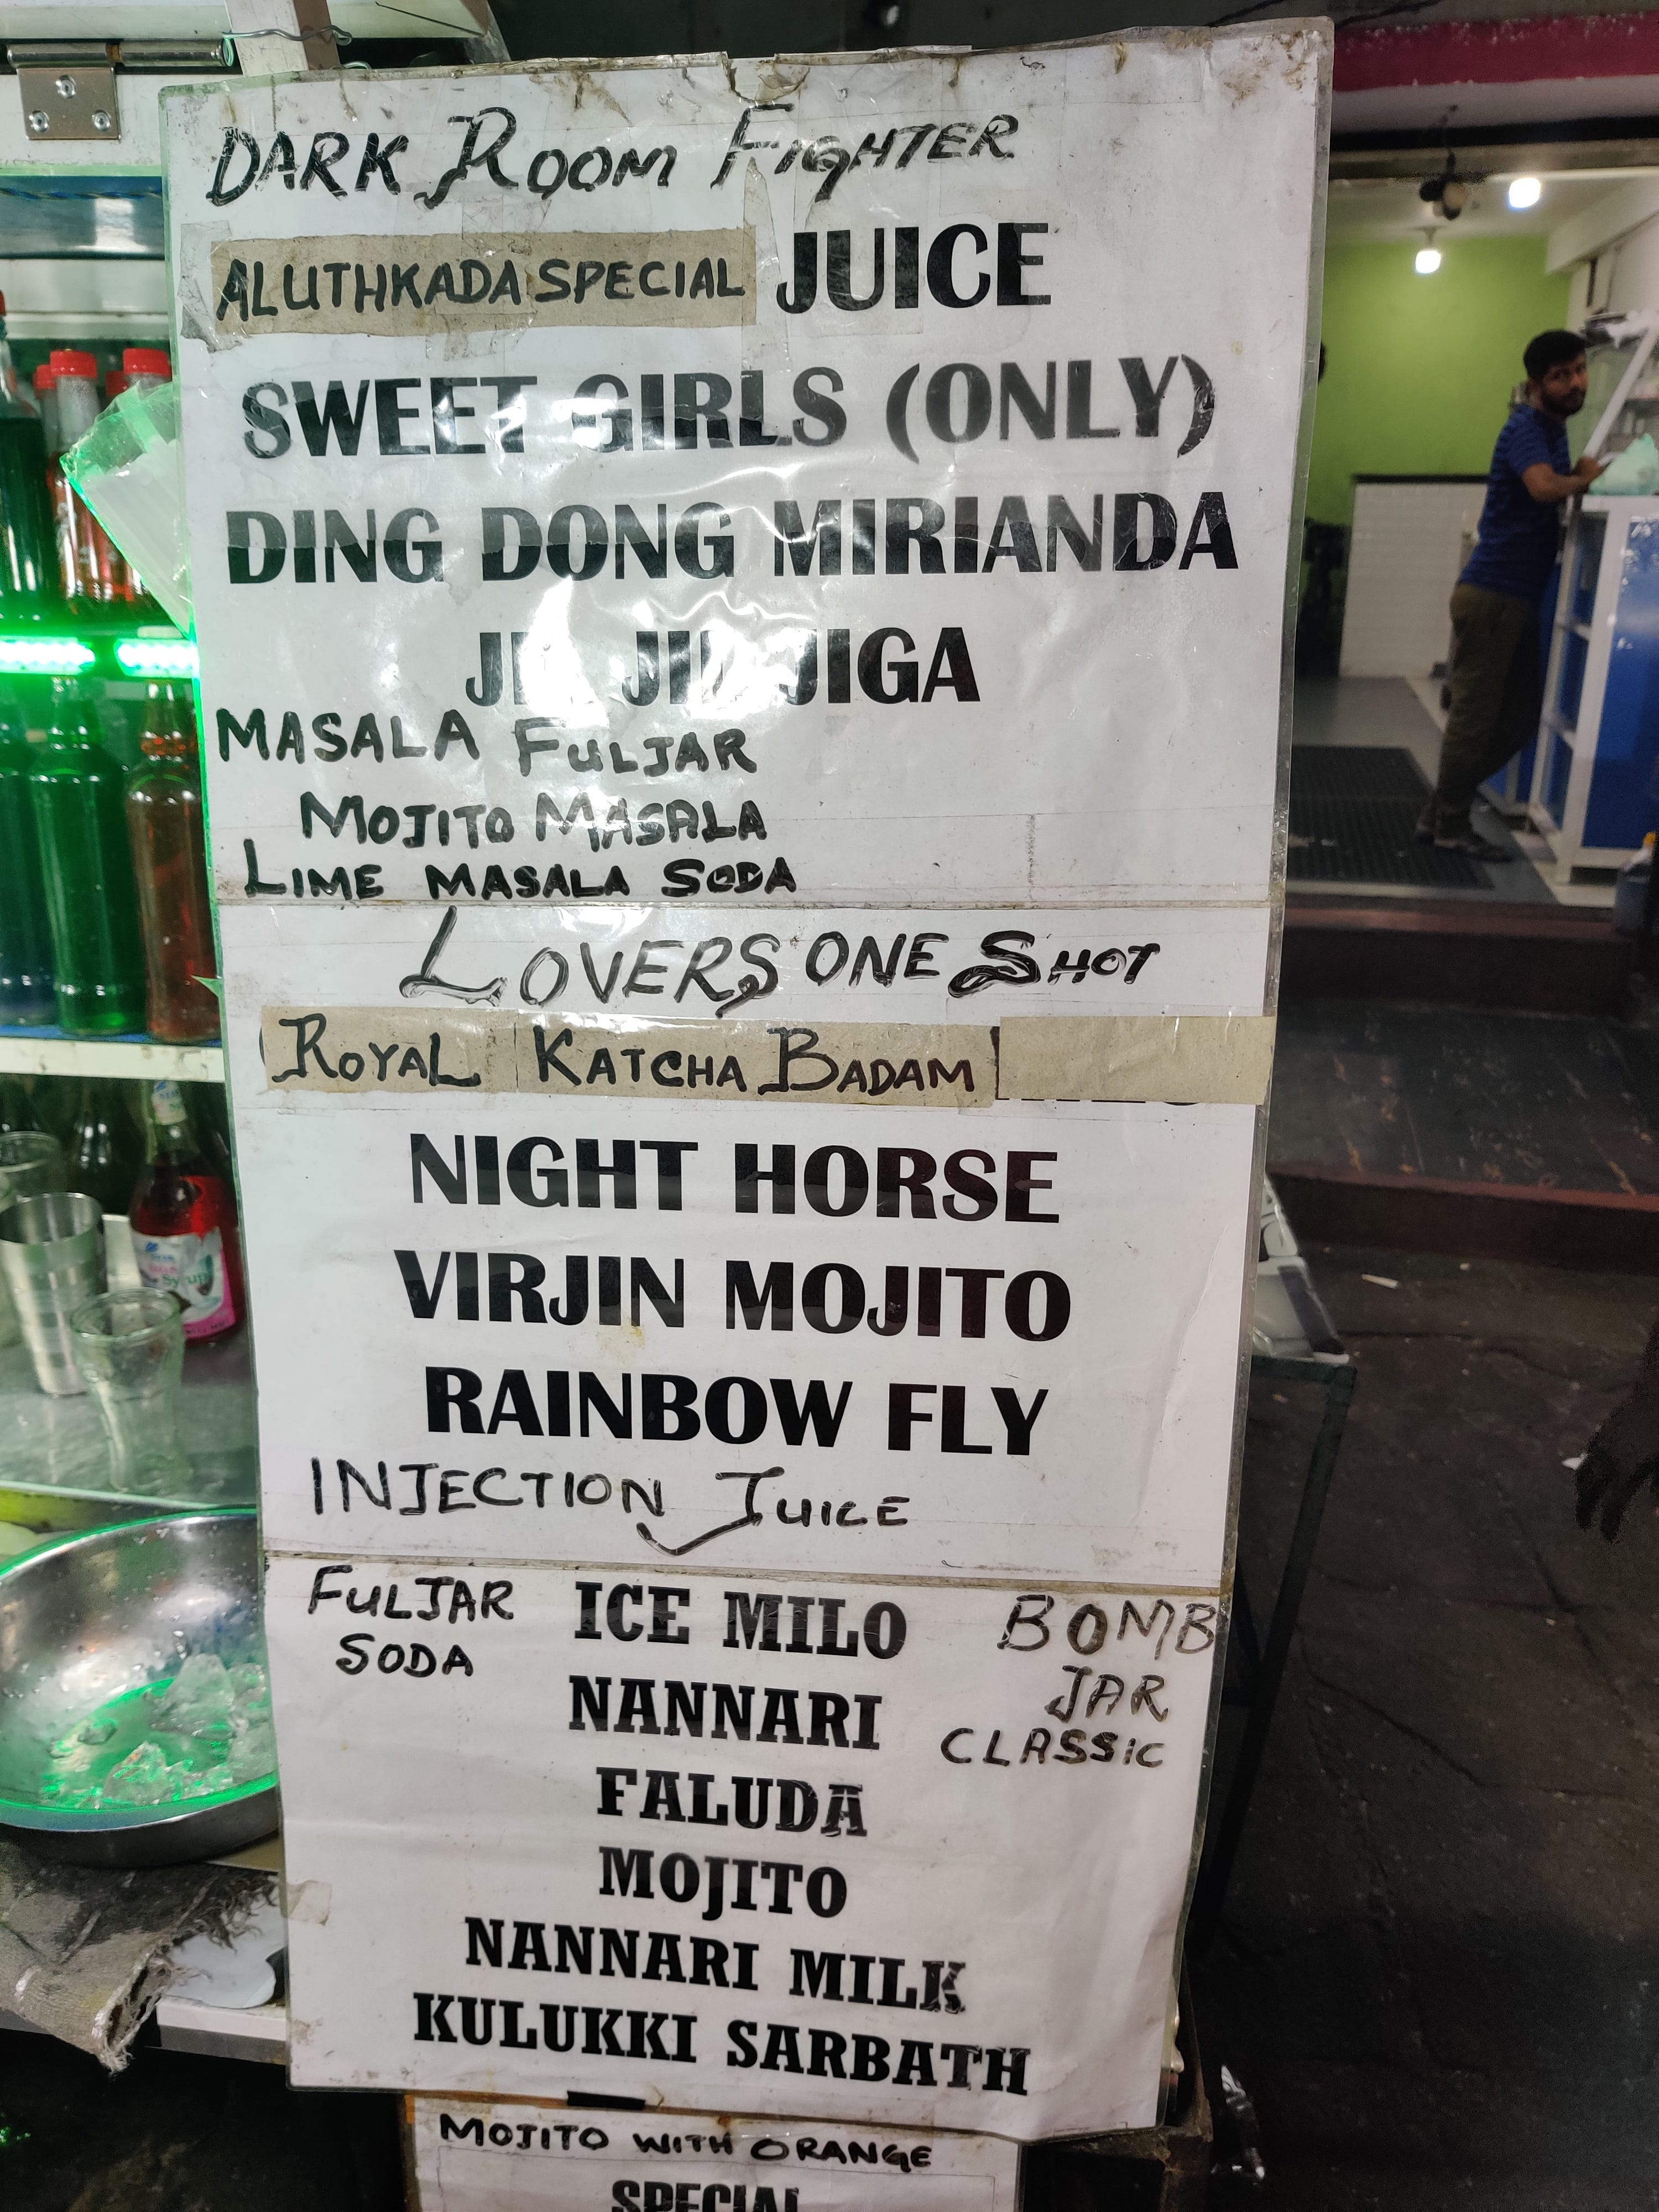 DARK ROOM FIGHTER
ALUTHKADA SPECIAL JUICE
SWEET GIRLS (ONLY)
DING DONG MIRIANDA
JIGA
MASALA FULJAR
MOJITO MASALA
LIME MASALA SODA
LOVERS ONE SHOT
ROYAL KATCHA BADAM
NIGHT HORSE
VIRJIN MOJITO
RAINBOW FLY
INJECTION JUICE
FULJAR
SODA
ICE MILO
NANNARI
FALUDA
MOJITO
NANNARI MILK
KULUKKI SARBATH
BOMB
JAR
CLASSIC
MOJITO WITH ORANGE
SPECIAL
Syrup